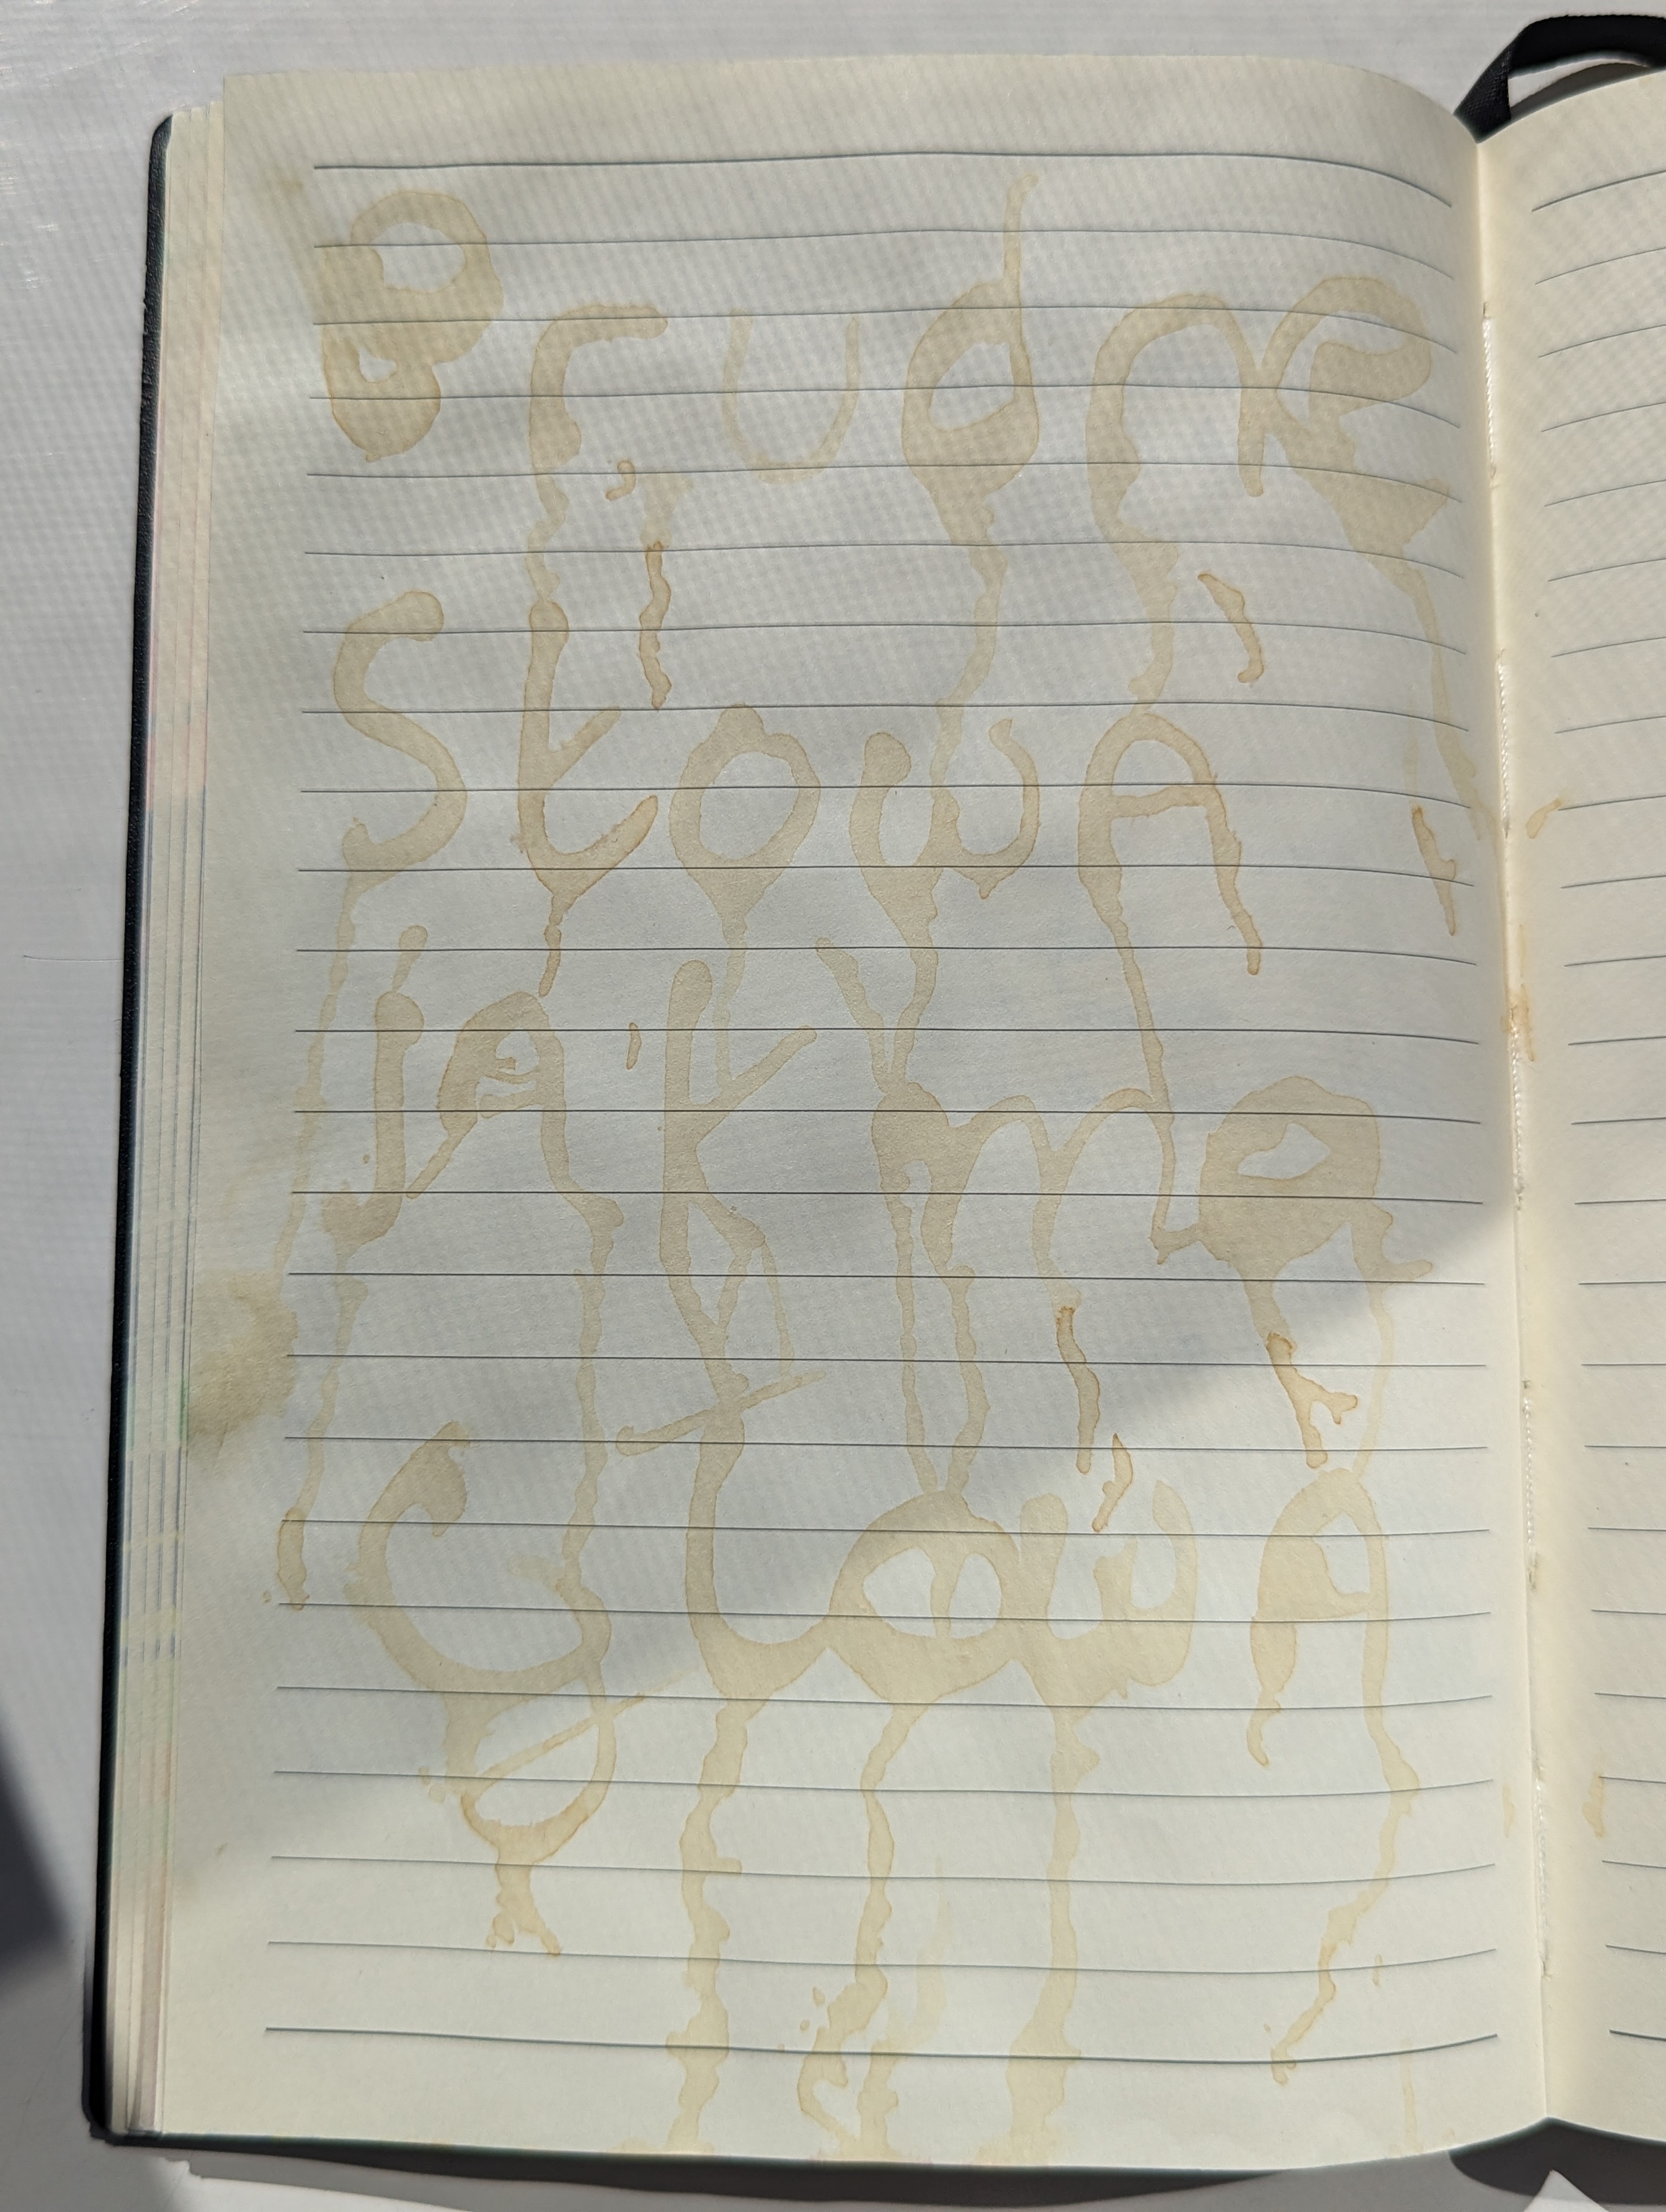 Brudne
Słowa
jak ma
Głowa